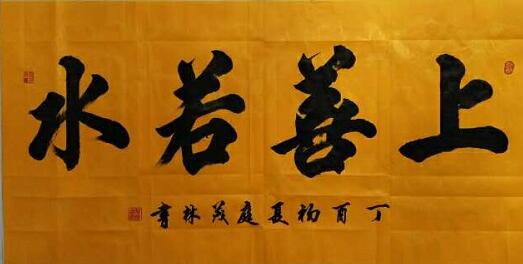 上善若水
丁酉初夏庭茂林書